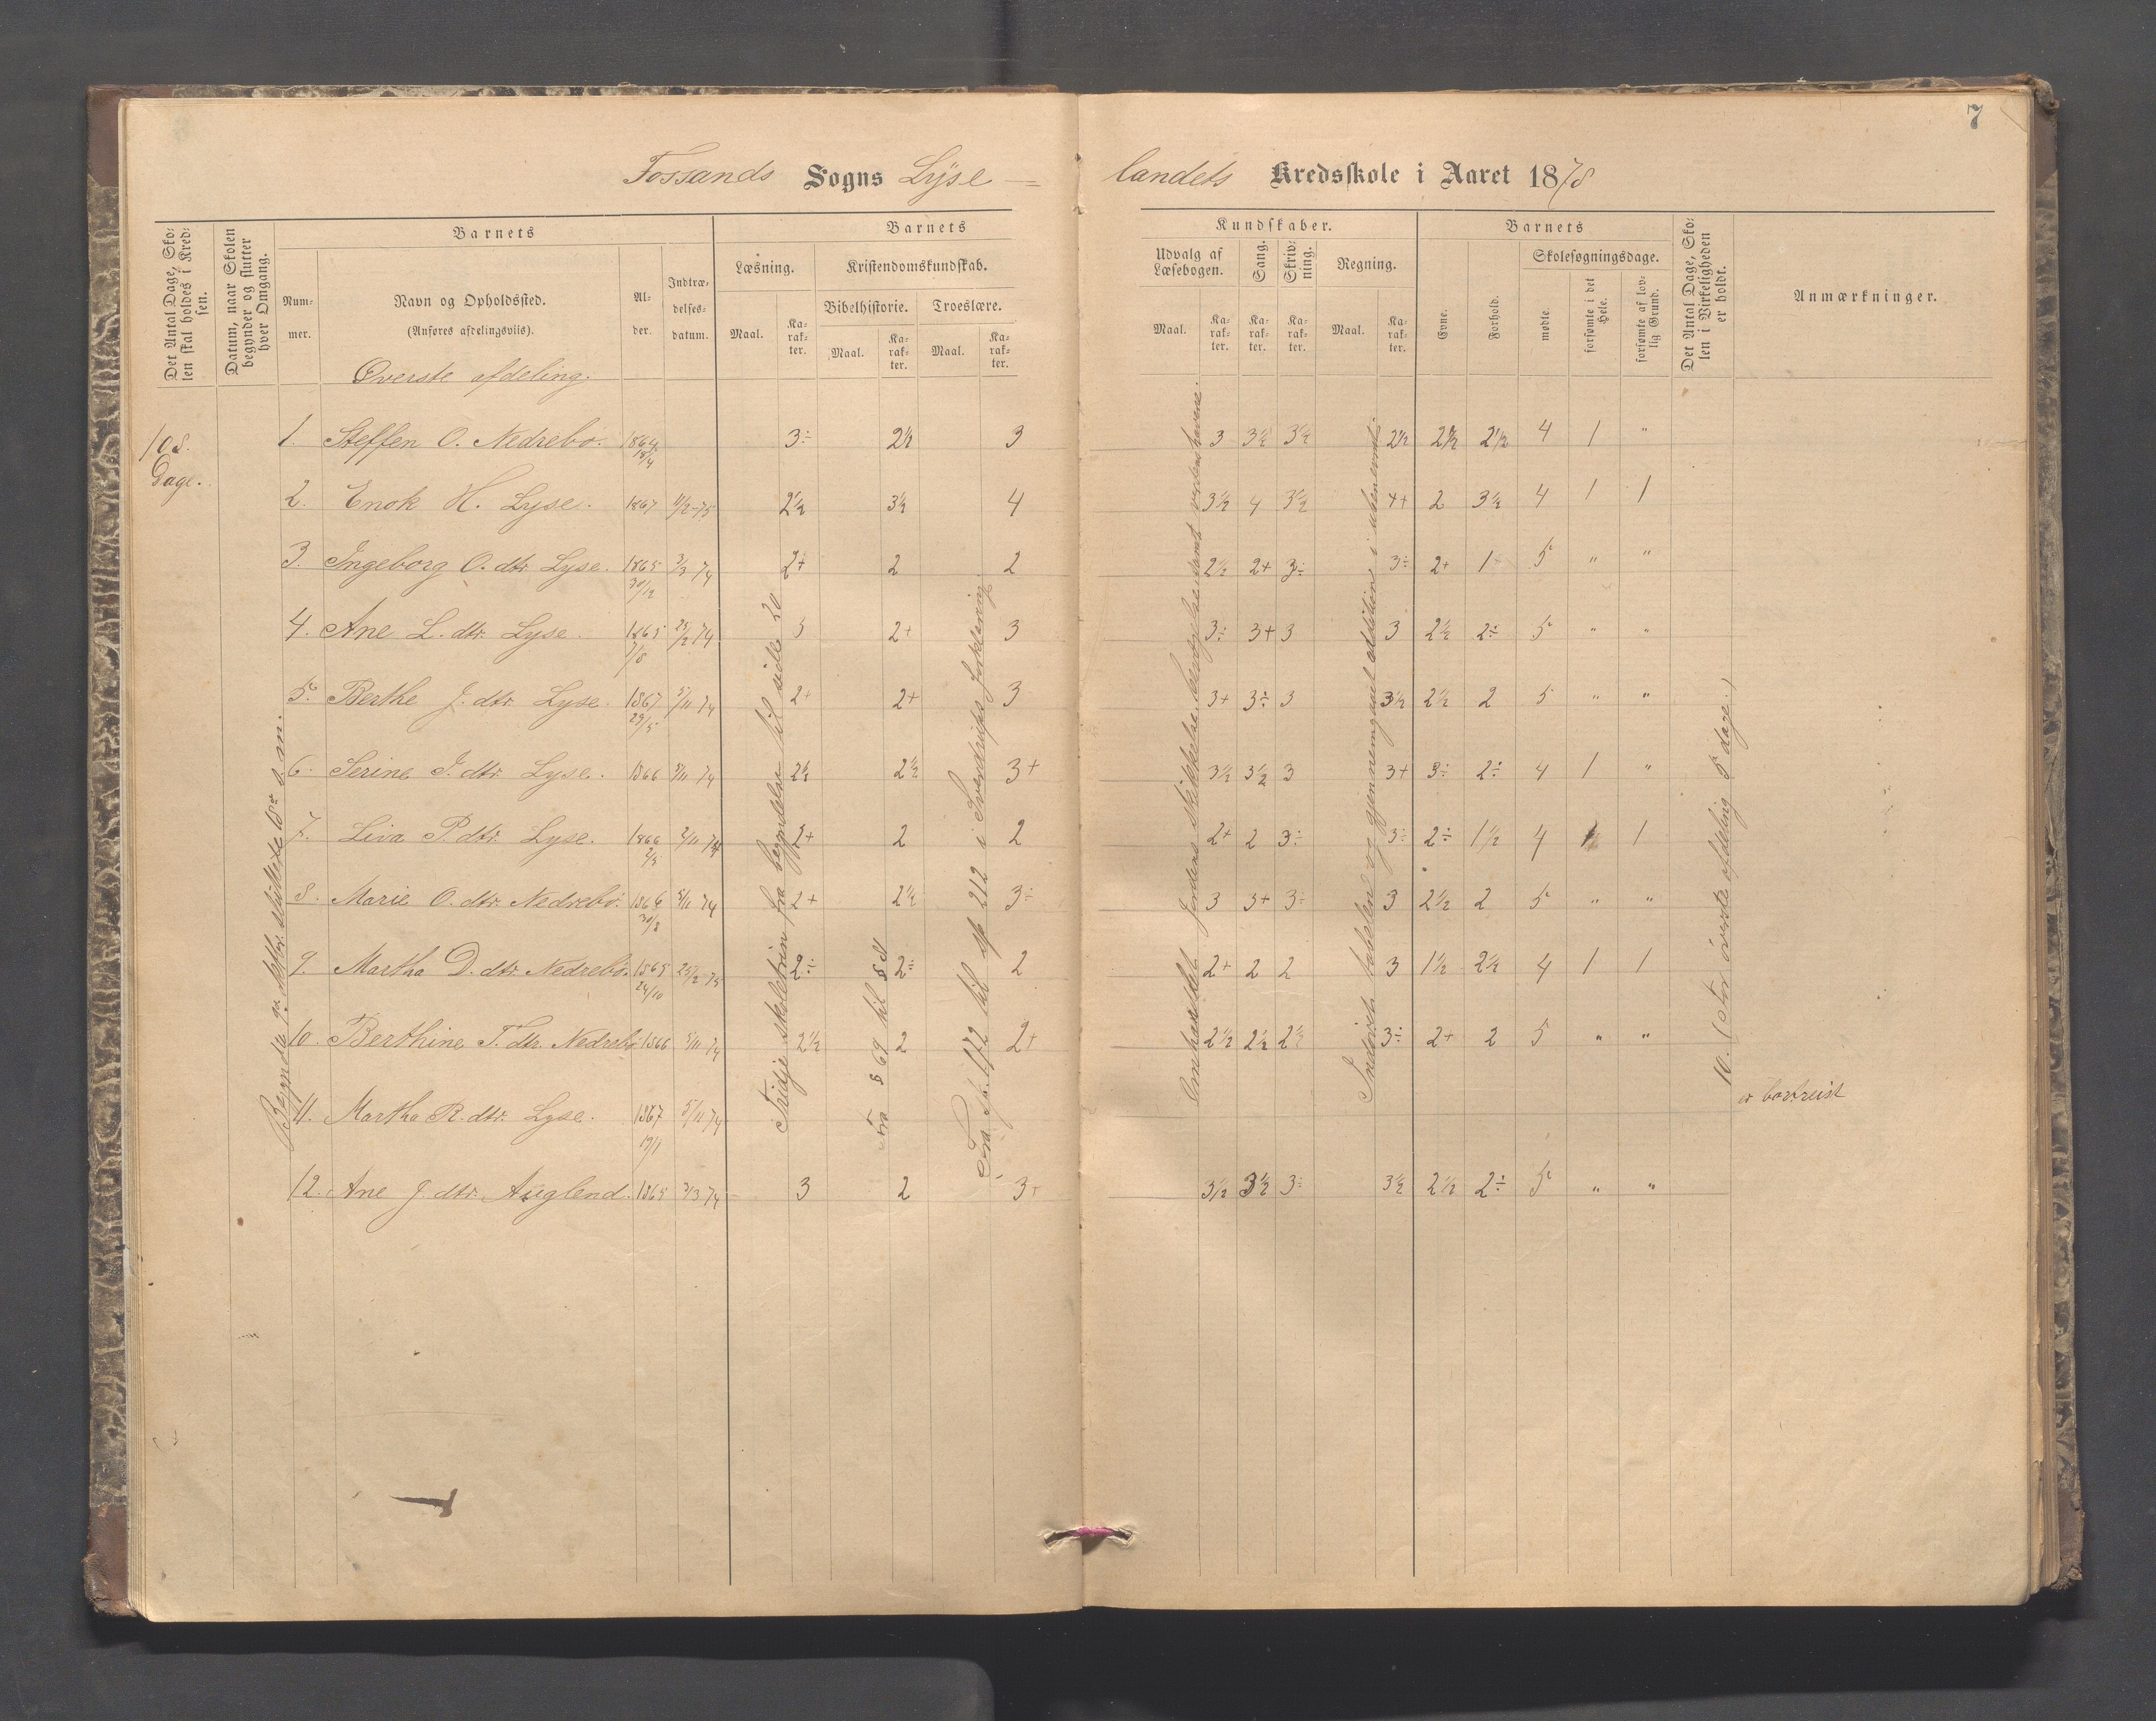 7
Fossands Sogns Lÿse = landets Kredsskole i Aaret 1878
Det Antal Dage, Skolen skal holdes i Kredsen.
Datum, naar Skolen begynder og slutter hver Omgang.
Barnets
Nummer.
Navn og Opholdssted.
(Anføres afdelingsviis).
Alder.
Indtrædelsesdatum.
Barnets
Læsning.
Kristendomskundskab.
Bibelhistorie.
Troeslære.
Maal.
Karakter.
Maal.
Karakter.
Maal.
Karakter.
Kundskaber.
Udvalg af Læsebogen.
Sang.
Skrivning.
Regning.
Maal.
Karakter.
Karakter.
Karakter.
Maal.
Karakter.
Barnets
Evne.
Forhold.
Skolesøgningsdage.
mødte.
forsømte i det Hele.
forsømte af lovlig Grund.
Det Antal Dage, Skolen i Virkeligheden er holdt.
Anmærkninger.
Øverste afdeling.
108. Dage.
1. Steffen O. Nedrebø. 1864 18/4 3÷ 2½ 3 3 3½ 3½ 2½ 2½ 2½ 4 1 "
2. Enok H. Lyse. 1867 11/2-75 2½ 3½ 4 3½ 4 3½ 4+ 2 3½ 4 1 1
3. Ingeborg O. dtr. Lyse. 1865 30/12 3/3 74 2+ 2 2 2½ 2+ 3÷ 3÷ 2+ 1 5 " "
4. Ane L. dtr. Lyse. 1865 7/8 25/2 74 3 2+ 3 3÷ 3+ 3 3 2½ 2÷ 5 " "
5. Berthe J. dtr. Lyse. 1867 29/5 5/11 74 2+ 2+ 3 3+ 3÷ 3 3½ 2½ 2 5 " "
6. Serine J. dtr. Lyse. 1866 5/11 74 2½ 2½ 3+ 3½ 3½ 3 3+ 3÷ 2÷ 4 1 "
7. Liva P. dtr. Lyse. 1866 2/5 2/11 74 2+ 2 2 2+ 2 3÷ 3÷ 2÷ 1½ 4 1 1
8. Marie O. dtr. Nedrebø. 1866 30/8 5/11 74 2+ 2½ 3÷ 3 3+ 3÷ 3 2½ 2 5 " "
9. Martha D. dtr. Nedrebø. 1865 24/10 25/2 75 2÷ 2÷ 2 2+ 2 2 3 1½ 2½ 4 1 1
10. Berthine T. dtr. Nedrebø 1866 5/11 74 2½ 2 2+ 2½ 2½ 2½ 3÷ 2+ 2 5 " "
11. Martha R. dtr. Lyse. 1867 19/11 5/11 74 er bortreist
12. Ane J. dtr. Auglend. 1865 3/3 74 3 2 3+ 3½ 3½ 3÷ 3½ 2½ 2÷ 5 " "
Tredje skoletrin fra begyndelsen til side 20
Fra § 69 til §
Fra sp. 172 til sp 212 i Sverdrups forklaring.
Omhandlet Jordens skikkelse, bevægelse samt verdenshavene.
Indøvet tabellen og gjennemgaaet addition i ubenævnte
10. (For øverste afdeling 5 dage.)